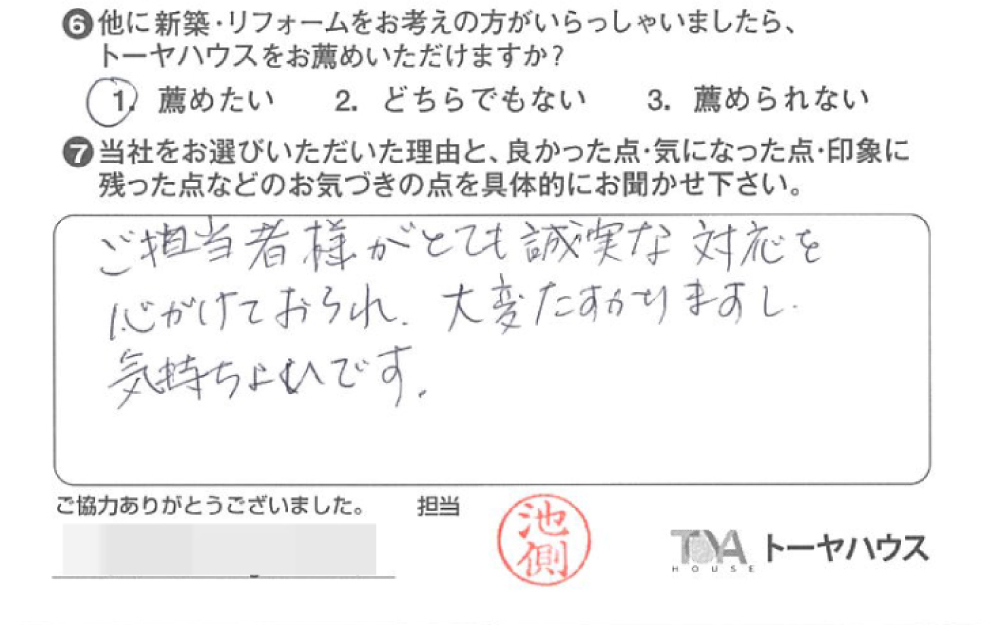 ❻他に新築・リフォームをお考えの方がいらっしゃいましたら、
トーヤハウスをお薦めいただけますか?
1. 薦めたい 2. どちらでもない 3. 薦められない
❼当社をお選びいただいた理由と、良かった点・気になった点・印象に
残った点などのお気づきの点を具体的にお聞かせ下さい。
ご担当者様がとても誠実な対応を
心がけておられ、大変たすかりますし、
気持ちよいです。
ご協力ありがとうございました。 担当
池側
TOYA HOUSE トーヤハウス